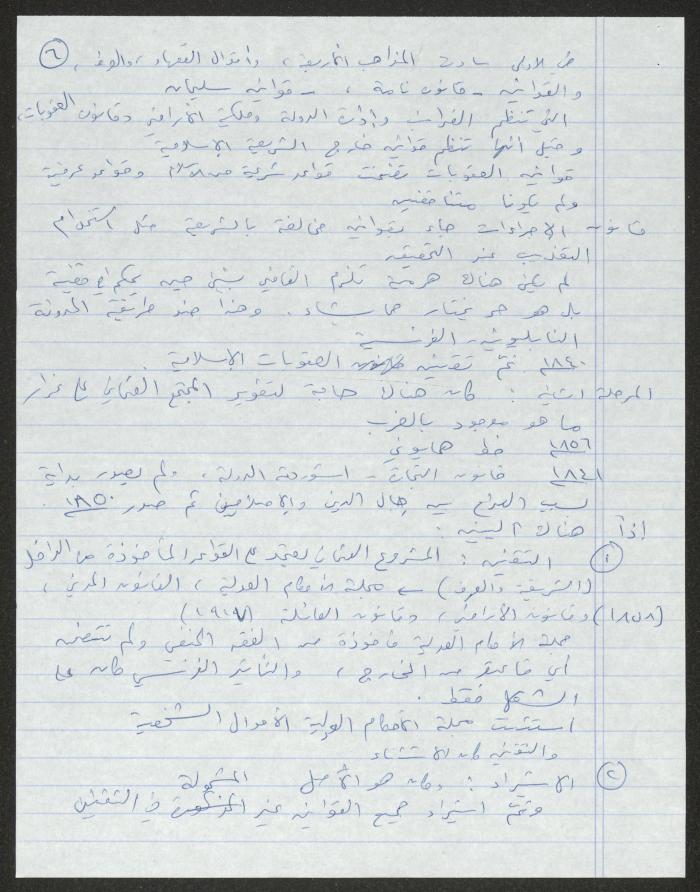 ٦
في الاولى سادت المذاهب الأربعة، وأقوال الفقهاء، والعرف،
والقوانين - قانون نامة، - قوانين سليمان
التي تنظم الضرائب وإدارة الدولة وملكية الأراضي وقانون العقوبات،
وقيل انها تنظم قوانين خارج الشريعة الإسلامية
قوانين العقوبات تضمنت قواعد شرعية من الإسلام وقواعد عرفية
ولم يكونا متناقضين
قانون الاجراءات جاء بقوانين مخالفة بالشريعة مثل استخدام
التعذيب عند التحقيق
لم يكن هناك هرمية تلزم القاضي بشيء حين يحكم في قضية
بل هو حر يختار ما يشاء. وهذا ضد طريقة المدونة
النابليونية الفرنسية
١٨٤٠ تم تقنين العقوبات الإسلامية.
المرحلة الثانية: كان هناك حاجة لتطوير المجتمع العثماني على غرار
ما هو موجود بالغرب
١٨٥٦ خط همايوني
١٨٤١ قانون التجارة - استوردته الدولة، ولم يصدر بداية
بسبب الصراع بين رجال الدين والإصلاحيين ثم صدر ١٨٥٠.
إذاً هناك آليتين:
١ التقنين: المشروع العثماني يعتمد على القواعد المأخوذة من الداخل
(الشريعة والعرف) ← مجلة الأحكام العدلية، القانون المدني،
(١٨٥٨) وقانون الأراضي، وقانون العائلة (١٩١٧)
مجلة الأحكام العدلية مأخوذة من الفقه الحنفي ولم تتضمن
أي من الخارج، والتأثير الفرنسي كان على
الشكل فقط.
استثنت مجلة الأحكام العدلية الأحوال الشخصية
والتقنين كان الاستثناء
٢ الاستيراد: وكان هو الأصل
وتم استيراد جميع القوانين غير المشمولة في التقنين